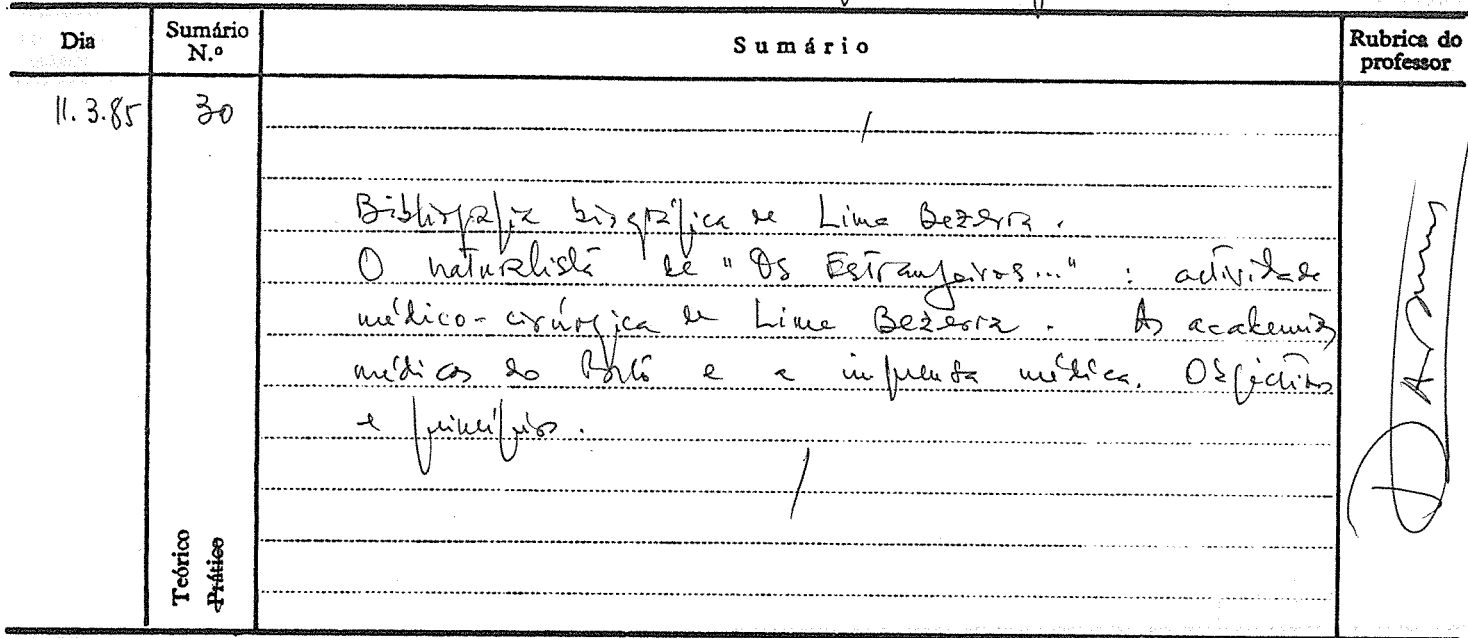 Dia
Sumário N.º
Sumário
Rubrica do professor
11.3.85
30
Bibliografia biográfica de Lima Bezerra.
O naturalista de "Os Estrangeiros..." : actividade
médico-cirúrgica de Lima Bezerra. As academias
médicas do Porto e a imprensa médica. Objectivos
e princípios.
Teórico
Prático